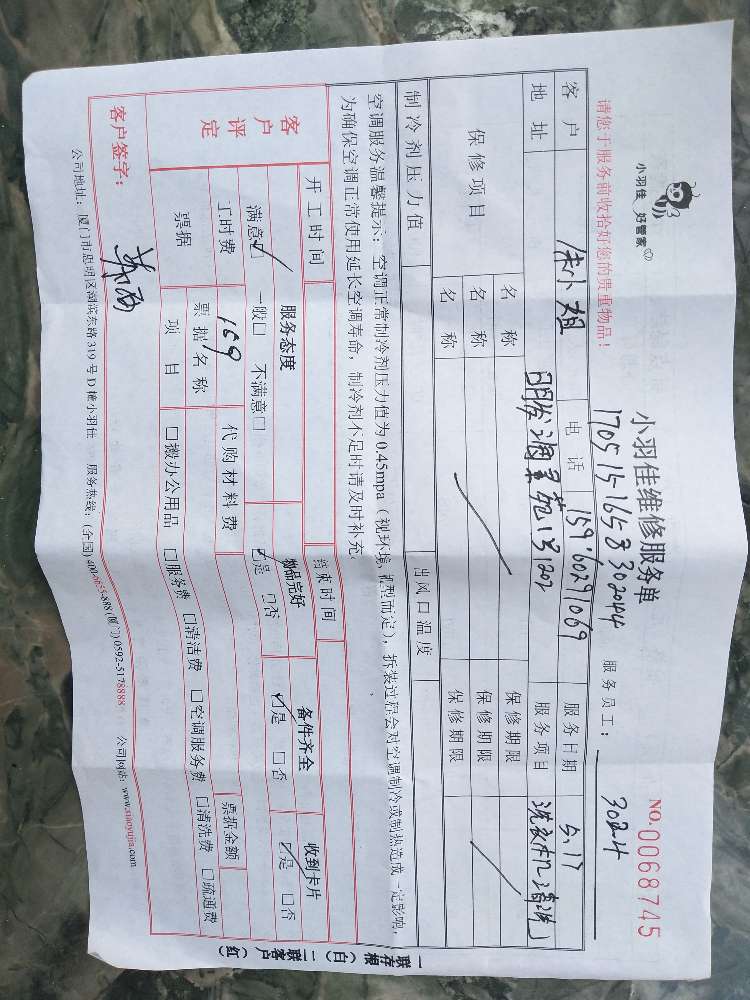 小羽佳 好管家
小羽佳维修服务单
NO.0068745
请您于服务前收拾好您的贵重物品！
17051516583302044
服务员工：
客户 朱小姐 电话 15960291069 服务日期 5.17
地址 明发海景苑13 1202 服务项目 洗衣机清洗
保修项目 名称 保修期限
名称 保修期限
名称 保修期限
制冷剂压力值 出风口温度
空调服务温馨提示：空调正常制冷剂压力值为0.45mpa（视环境,机型而定），拆装过程会对空调制冷或制热造成一定影响，
为确保空调正常使用延长空调寿命，制冷剂不足时请及时补充。
开工时间 结束时间
客户评定 服务态度 物品完好 备件齐全 收到卡片
满意☑ 一般□ 不满意□ ☑是 □否 ☑是 □否 ☑是 □否
工时费 159 代购材料费 票据金额
票据 票据名称
项目 □搬办公用品 □服务费 □清洁费 □空调服务费 □清洗费 □疏通费
客户签字：
公司地址：厦门市思明区湖滨东路319号D楼小羽佳 服务热线：(全国)400-0655-888(厦门)0592-5178888 公司网站：www.xiaoyujia.com
一联存根（白）二联客户（红）